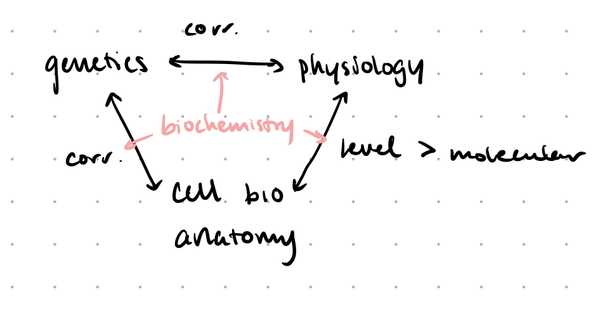 corr.
genetics physiology
biochemistry
corr. level > molecular
cell bio
anatomy